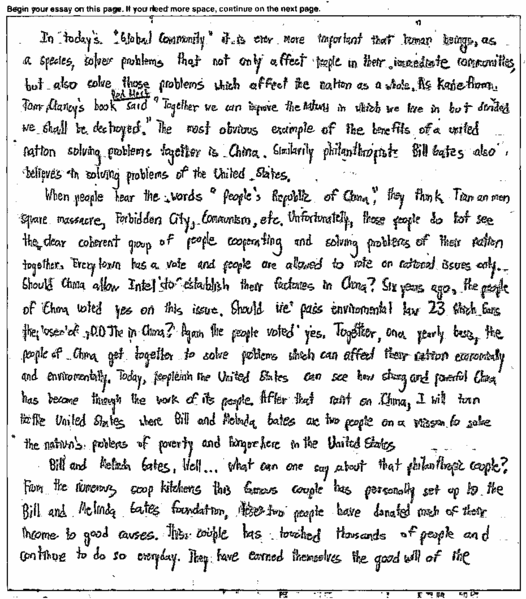 Begin your essay on this page. If you need more space, continue on the next page.
In today's "Global Community" it is ever more important that human beings, as
a species, solver problems that not only affect people in their immediate communities,
but also solve those problems which affect the nation as a whole. As Kane from
Tom Clancy's book Red Heck said "Together we can improve the nature in which we live in but divided
we shall be destroyed." The most obvious example of the benefits of a united
nation solving problems together is China. Similarily philanthropists Bill Gates also
believes in solving problems of the United States.
When people hear the words "People's Republic of China," they think Tian an men
square massacre, Forbidden City, Communism, etc. Unfortunately, those people do not see
the clear coherent group of people cooperating and solving problems of their nation
together. Every town has a vote and people are allowed to vote on national issues only.
Should China allow Intel to establish their factories in China? Six years ago, the people
of China voted yes on this issue. Should we pass enviromental law 23 which bans
the use of in China? Again the people voted yes. Together, on a yearly basis, the
people of China get together to solve poblems which can affect their nation economically
and enviromentally. Today, people in the United States can see how strong and powerful China
has become through the work of its people. After that rant on China, I will turn
to the United States where Bill and Melinda Gates are two people on a mission to solve
the nation's problems of poverty and hunger here in the United States
Bill and Melinda Gates, Well... what can one say about that philanthropic couple?
From the numerous soop kitchens this famous couple has personally set up to the
Bill and Melinda Gates foundation, these two people have donated much of their
income to good causes. This couple has touched thousands of people and
continue to do so everyday. They have earned themselves the good will of the